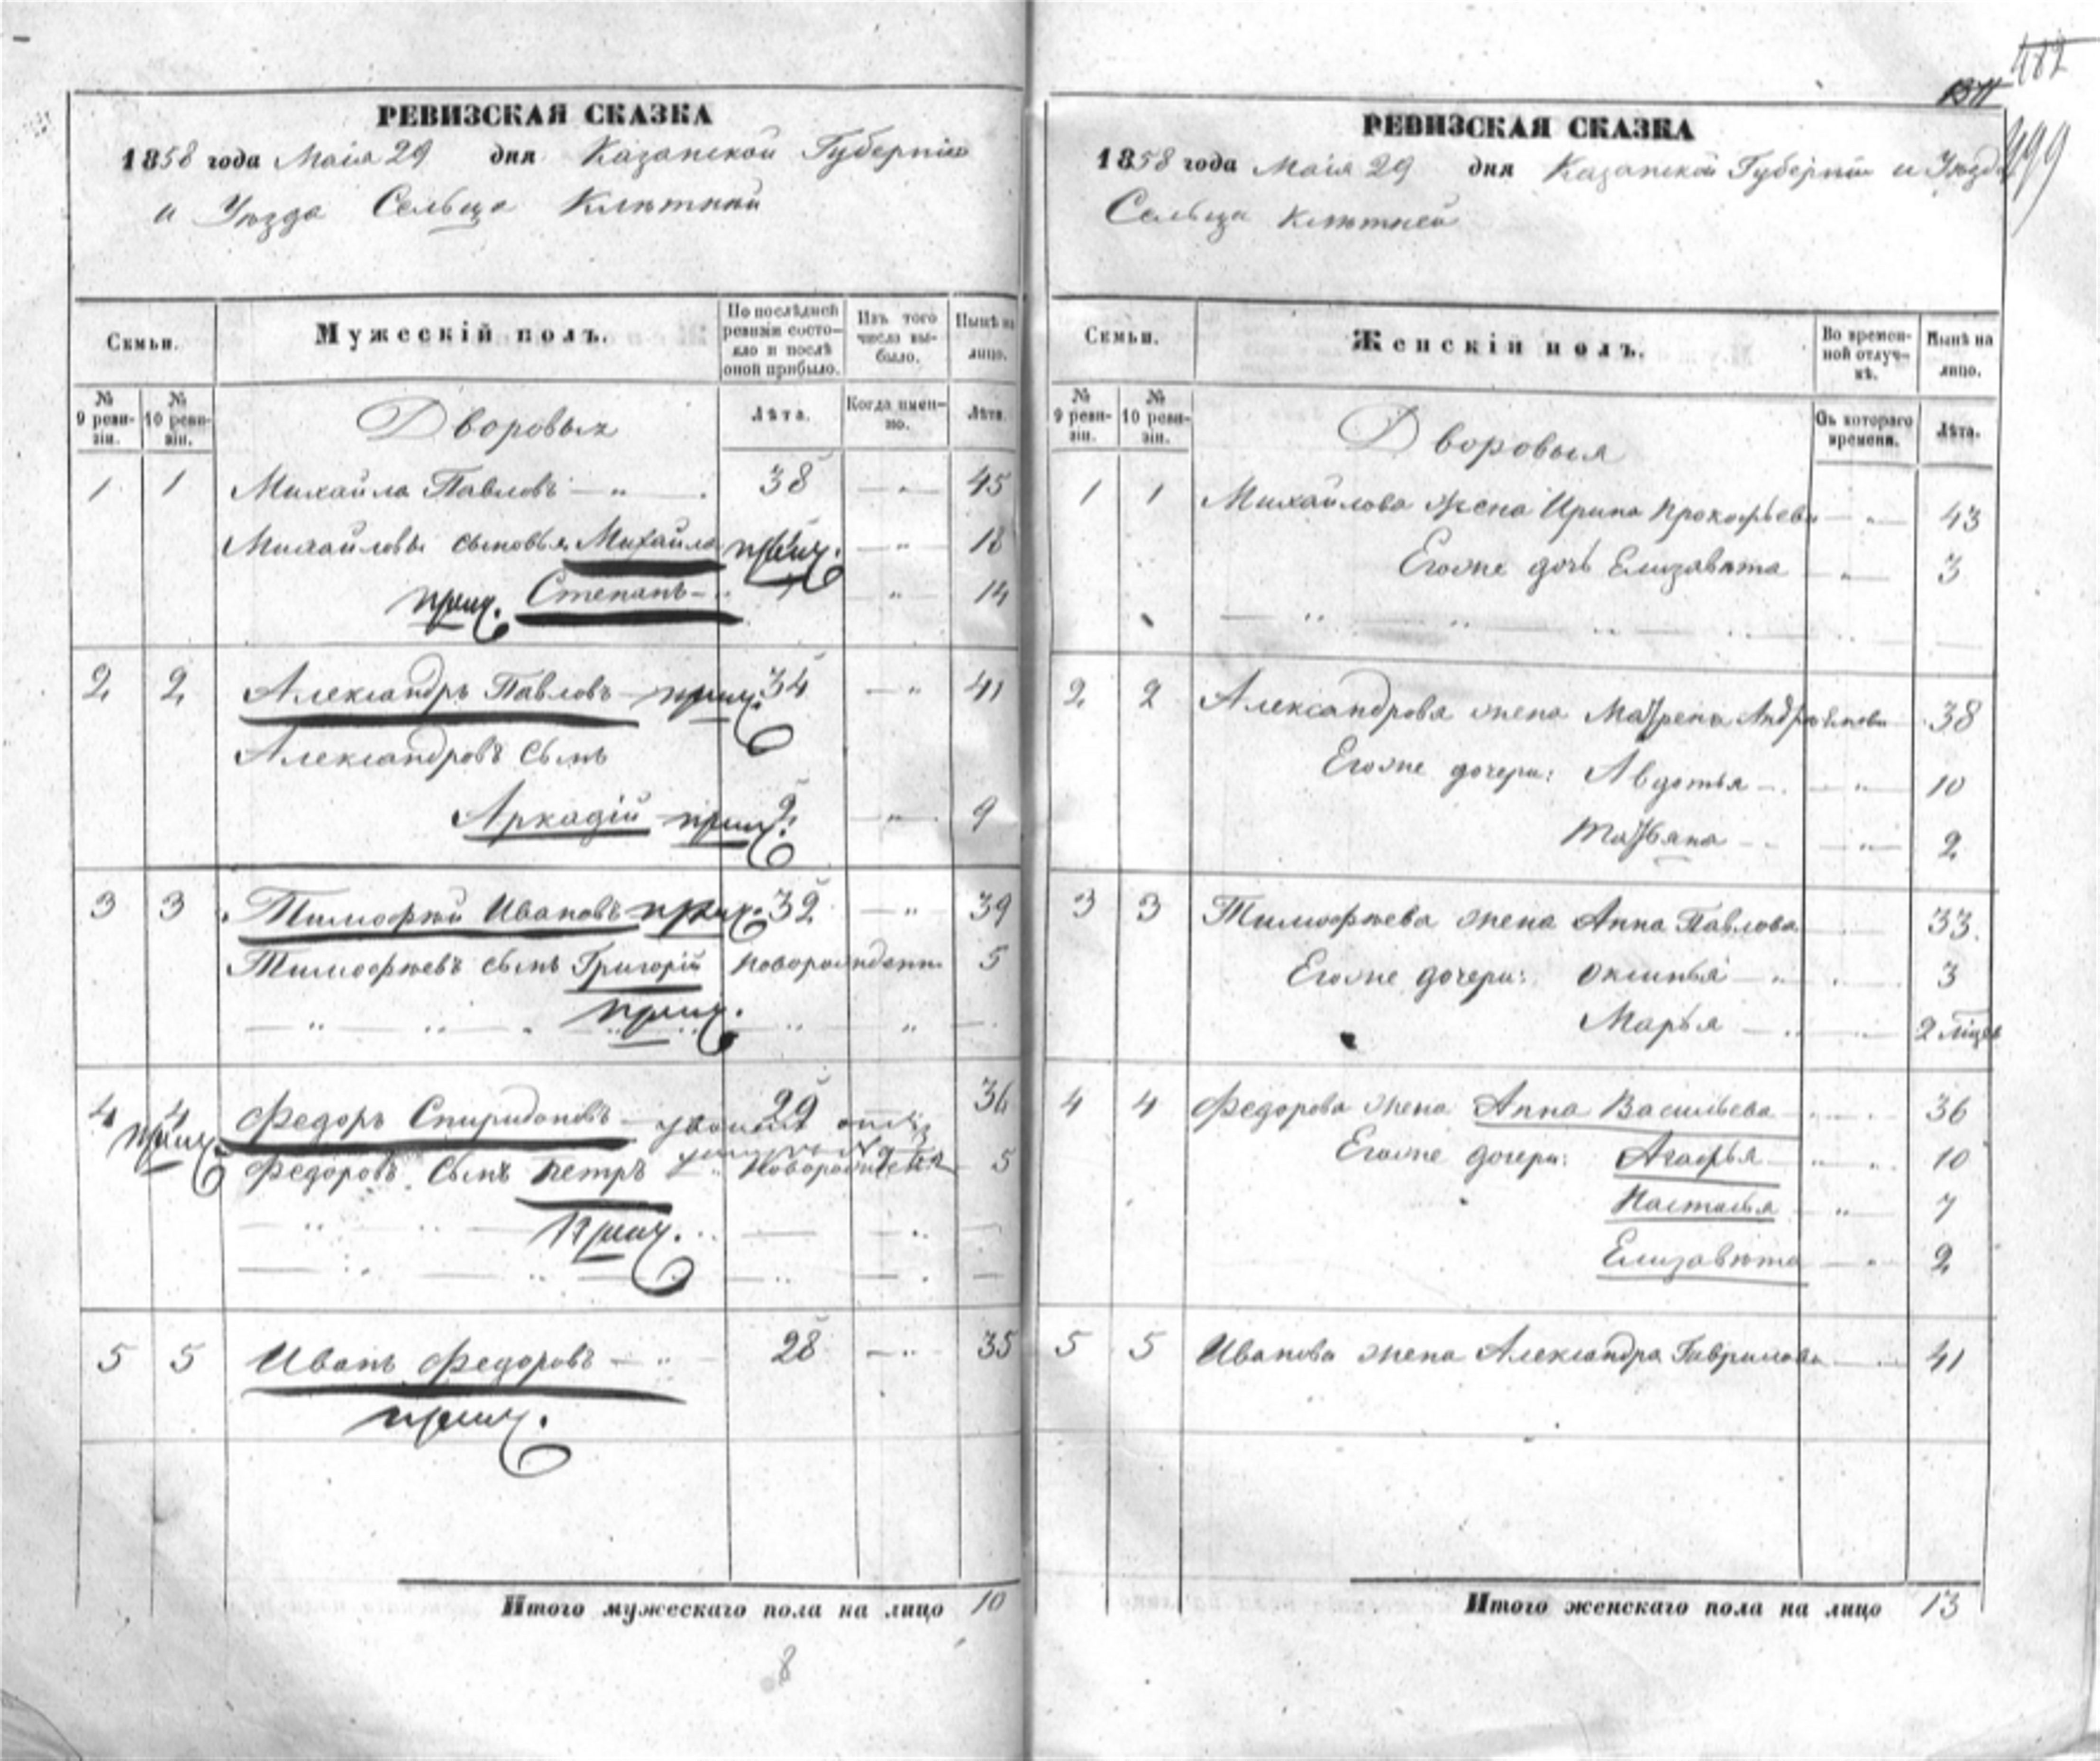 РЕВИЗСКАЯ СКАЗКА
1858 года Маія 29 дня Казанской Губерніи
и Уѣзда Сельца Клѣтней
Семьи.
Мужескій полъ.
По послѣдней ревизіи состояло и послѣ оной прибыло.
Изъ того числа выбыло.
Нынѣ на лицо.
№ 9 ревизіи.
№ 10 ревизіи.
Лѣта.
Когда именно.
Лѣта.
Дворовыхъ
1 1 Михайла Павловъ — „ 38 — „ 45
Михайловы сыновья Михайла прич. — „ 18
прич. Степанъ — „ 14
2 2 Александръ Павловъ — прич. 34 — „ 41
Александровъ сынъ
Аркадій — прич. 2 — „ 9
3 3 Тимофѣй Ивановъ прич. 32 — „ 39
Тимофѣевъ сынъ Григорій Новорожденн 5
прич.
4 4 Федоръ Спиридоновъ — 29 36
прич.
Федоровъ сынъ Петръ Новорожденъ 5
Прич.
5 5 Иванъ Федоровъ — „ 28 — „ 35
прич.
Итого мужескаго пола на лицо 10
8
482
499
РЕВИЗСКАЯ СКАЗКА
1858 года Маія 29 дня Казанской Губерніи и Уѣзда
Сельца Клѣтней
Семьи.
Женскій полъ.
Во временной отлучкѣ.
Нынѣ на лицо.
№ 9 ревизіи.
№ 10 ревизіи.
Съ котораго времени.
Лѣта.
Дворовыя
1 1 Михайлова жена Ирина Прокофьева — „ 43
Егоже дочь Елизавѣта — „ 3
2 2 Александрова жена Матрена — 38
Егоже дочери: Авдотья — „ 10
Татьяна — „ 2
3 3 Тимофѣева жена Анна Павлова 33
Егоже дочери: Оксинья — „ 3
Марья — „ 2 мѣсяц
4 4 Федорова жена Анна Васильева 36
Егоже дочери: Агафья — „ 10
Настасья — „ 7
Елизавѣта — „ 2
5 5 Иванова жена Александра Гаврилова — „ 41
Итого женскаго пола на лицо 13